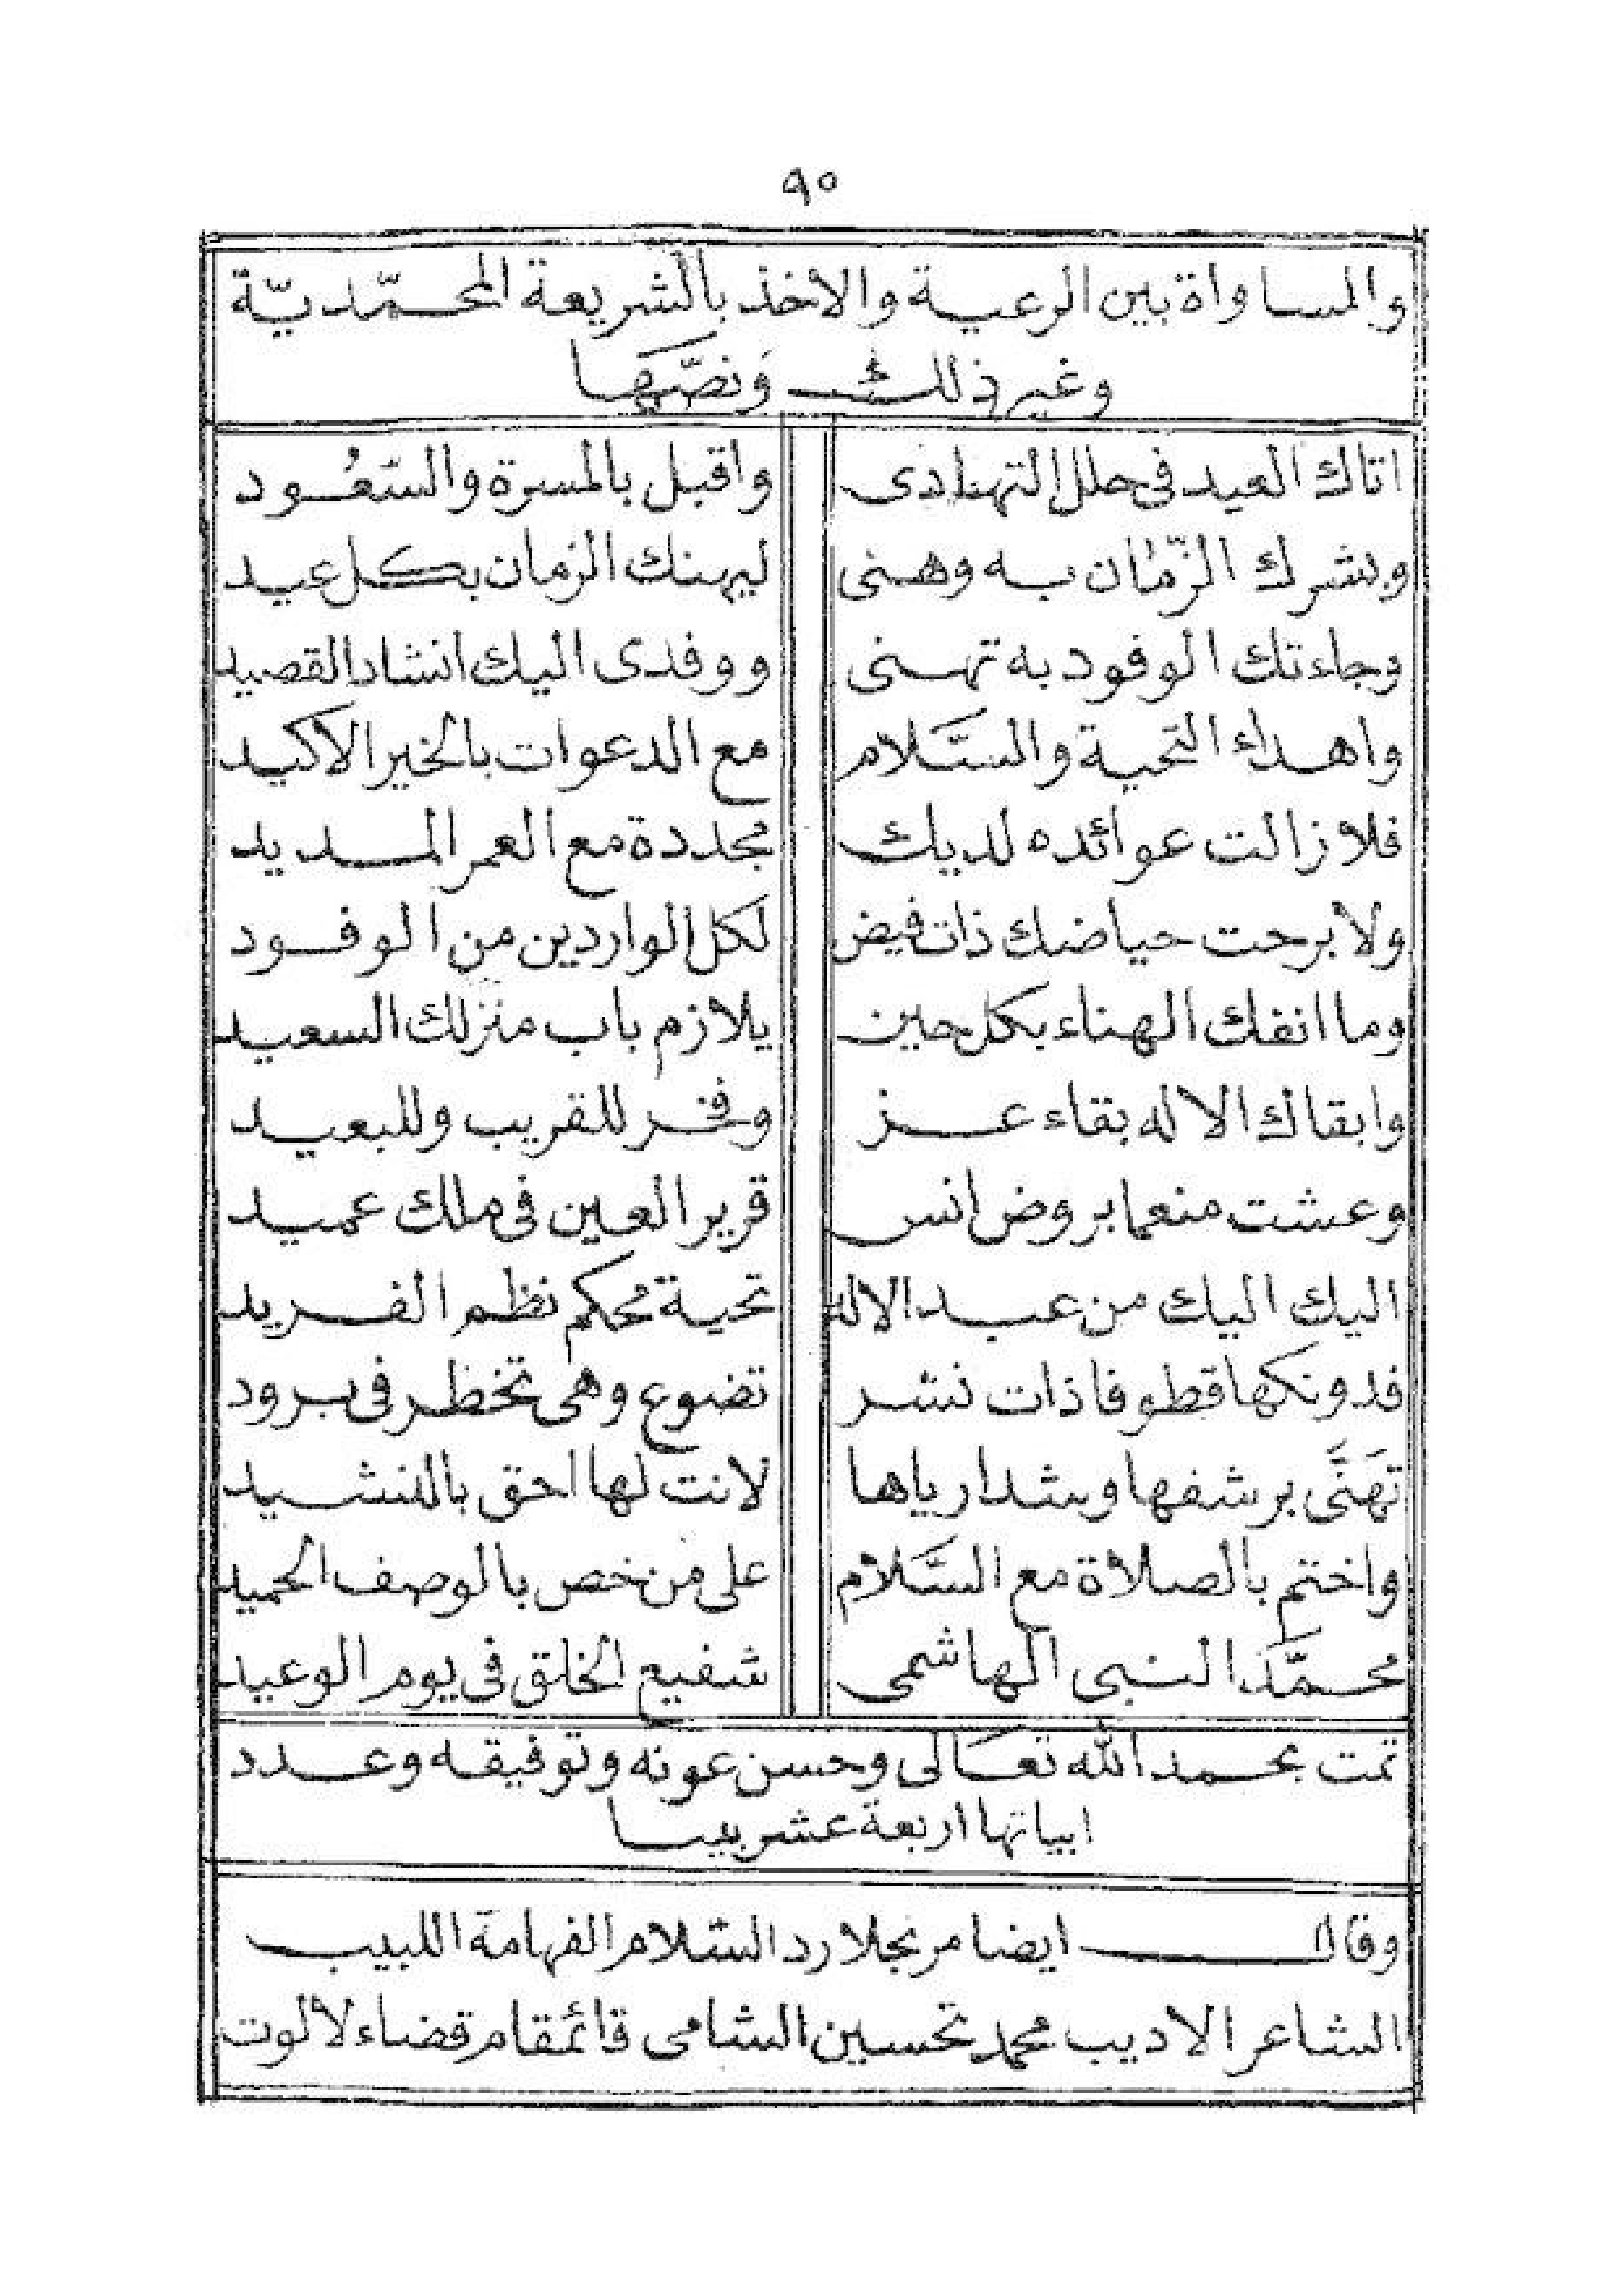 ٩٠
والمساواة بين الرعية والاخذ بالشريعة المحمّديّة
وغير ذلك وَنصّها
اتاك العيد في حلل التهادى واقبل بالمسرة والسّعُود
وبشرك الزّمان به وهنى ليهنك الزمان بكل عيد
وجاءتك الوفود به تهنى ووفدى اليك انشاد القصيد
واهداء التحية والسَّلام مع الدعوات بالخير الاكيد
فلا زالت عوائده لديك مجددة مع العمر المديد
ولا برحت حياضك ذات فيض لكل الواردين من الوفود
وما انفك الهناء بكل حين يلازم باب منزلك السعيد
وابقاك الاله بقاء عز وفخر للقريب وللبعيد
وعشت منعما بروض انس قرير العين في ملك عميد
اليك اليك من عبد الاله تحية محكم نظم الفريد
فدونكها قطوفا ذات نشر تضوع وهى تخظر في برود
تَهَنَّى برشفها وشدا رياها لانت لها احق بالنشيد
واختم بالصلاة مع السَّلام على من خص بالوصف الحميد
محمَّد النبى الهاشمى شفيع الخلق في يوم الوعيد
تمت بحمد الله تعَالى وحسن عونه وتوفيقه وعدد
ابياتها اربعة عشر بيتا
وقال ايضا مرتجلا رد السّلام الفهامة اللبيب
الشاعر الاديب محمد تحسين الشامى قائمقام قضاء لالوت